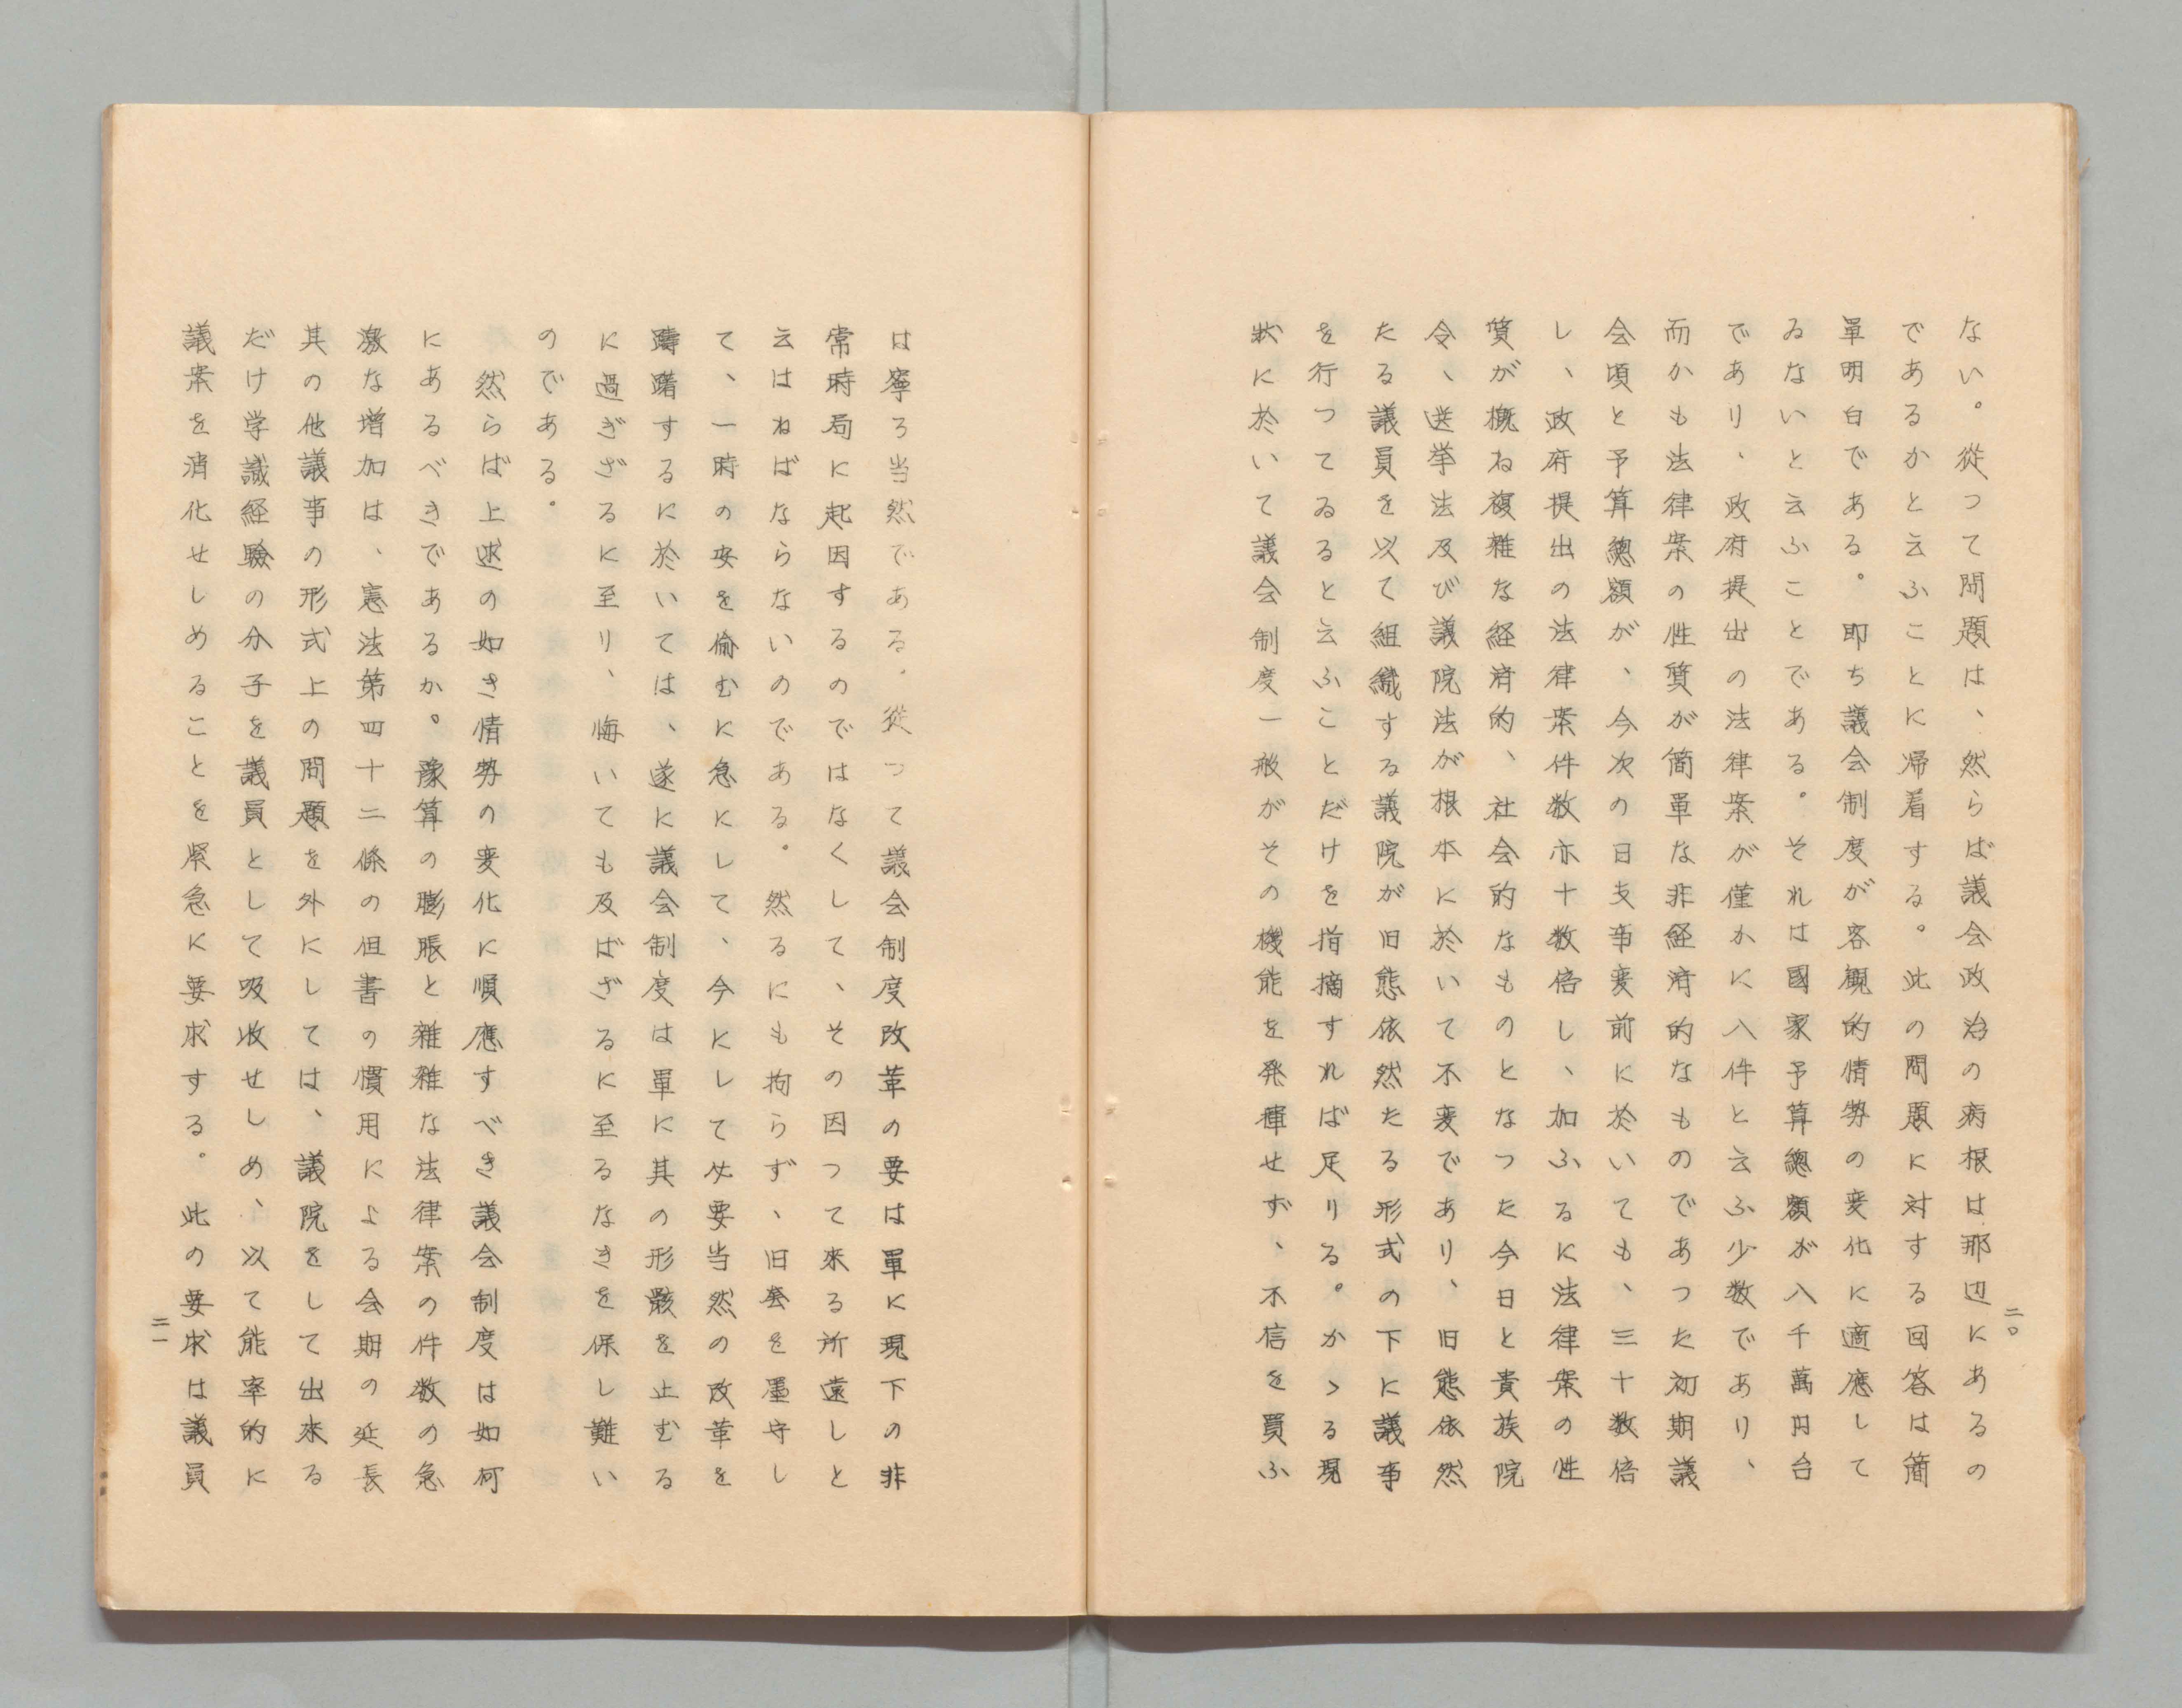 ない。從って問題は、然らば議会政治の病根は那辺にあるの
であるかと云ふことに帰着する。此の問題に対する回答は簡
單明白である。即ち議会制度が客観的情勢の変化に適應して
ゐないと云ふことである。それは國家予算總額が八千萬円台
であり、政府提出の法律案が僅かに八件と云ふ少数であり、
而かも法律案の性質が簡單な非経済的なものであつた初期議
会頃と予算總額が、今次の日支事変前に於いても、三十数倍
し、政府提出の法律案件数亦十数倍し、加ふるに法律案の性
質が概ね複雑な経済的、社会的なものとなつた今日と貴族院
令、選挙法及び議院法が根本に於いて不変であり、旧態依然
たる議員を以て組織する議院が旧態依然たる形式の下に議事
を行つてゐると云ふことだけを指摘すれば足りる。かゝる現
状に於いて議会制度一般がその機能を発揮せず、不信を買ふ
二〇
は寧ろ当然である。從つて議会制度改革の要は單に現下の非
常時局に起因するのではなくして、その因つて来る所遠しと
云はねばならないのである。然るにも拘らず、旧套を墨守し
て、一時の安を偷むに急にして、今にして必要当然の改革を
躊躇するに於いては、遂に議会制度は單に其の形骸を止むる
に過ぎざるに至り、悔いても及ばざるに至るなきを保し難い
のである。
然らば上述の如き情勢の変化に順應すべき議会制度は如何
にあるべきであるか。豫算の膨脹と雜雜な法律案の件数の急
激な増加は、憲法第四十二條の但書の慣用による会期の延長
其の他議事の形式上の問題を外にしては、議院をして出来る
だけ学識経驗の分子を議員として吸收せしめ、以て能率的に
議案を消化せしめることを緊急に要求する。此の要求は議員
二一